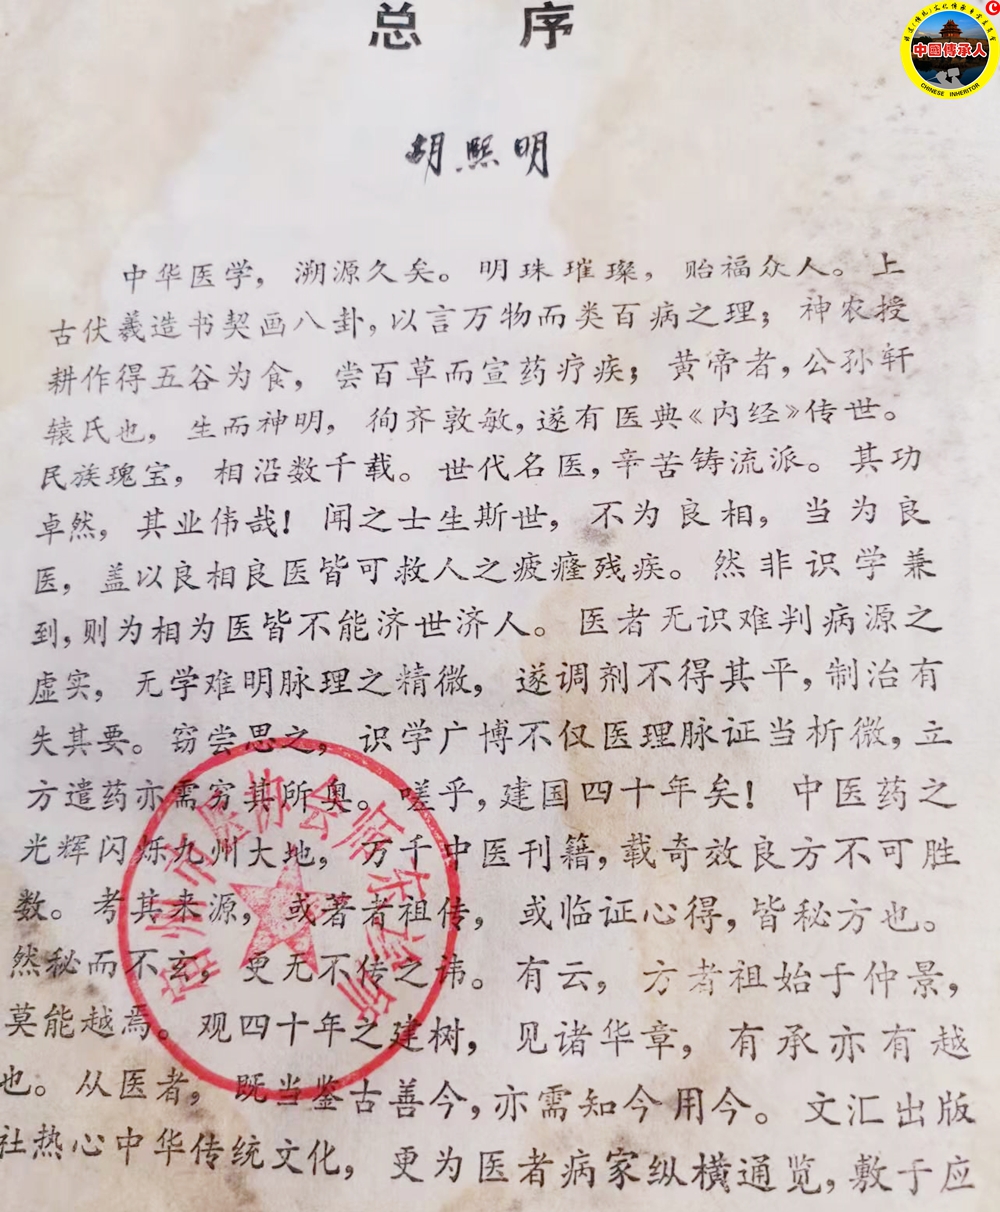 总 序
胡熙明
中华医学，溯源久矣。明珠璀璨，贻福众人。上
古伏羲造书契画八卦，以言万物而类百病之理；神农授
耕作得五谷为食，尝百草而宣药疗疾；黄帝者，公孙轩
辕氏也，生而神明，徇齐敦敏，遂有医典《内经》传世。
民族瑰宝，相沿数千载。世代名医，辛苦铸流派。其功
卓然，其业伟哉！闻之士生斯世，不为良相，当为良
医，盖以良相良医皆可救人之疲癃残疾。然非识学兼
到，则为相为医皆不能济世济人。医者无识难判病源之
虚实，无学难明脉理之精微，遂调剂不得其平，制治有
失其要。窃尝思之，识学广博不仅医理脉证当析微，立
方遣药亦需穷其所奥。嗟乎，建国四十年矣！中医药之
光辉闪烁九州大地，万千中医刊籍，载奇效良方不可胜
数。考其来源，或著者祖传，或临证心得，皆秘方也。
然秘而不玄，更无不传之讳。有云，方者祖始于仲景，
莫能越焉。观四十年之建树，见诸华章，有承亦有越
也。从医者，既当鉴古善今，亦需知今用今。文汇出版
社热心中华传统文化，更为医者病家纵横通览，敷于应
宿州市 协会师东 所
中國傳承人
CHINESE INHERITOR
C